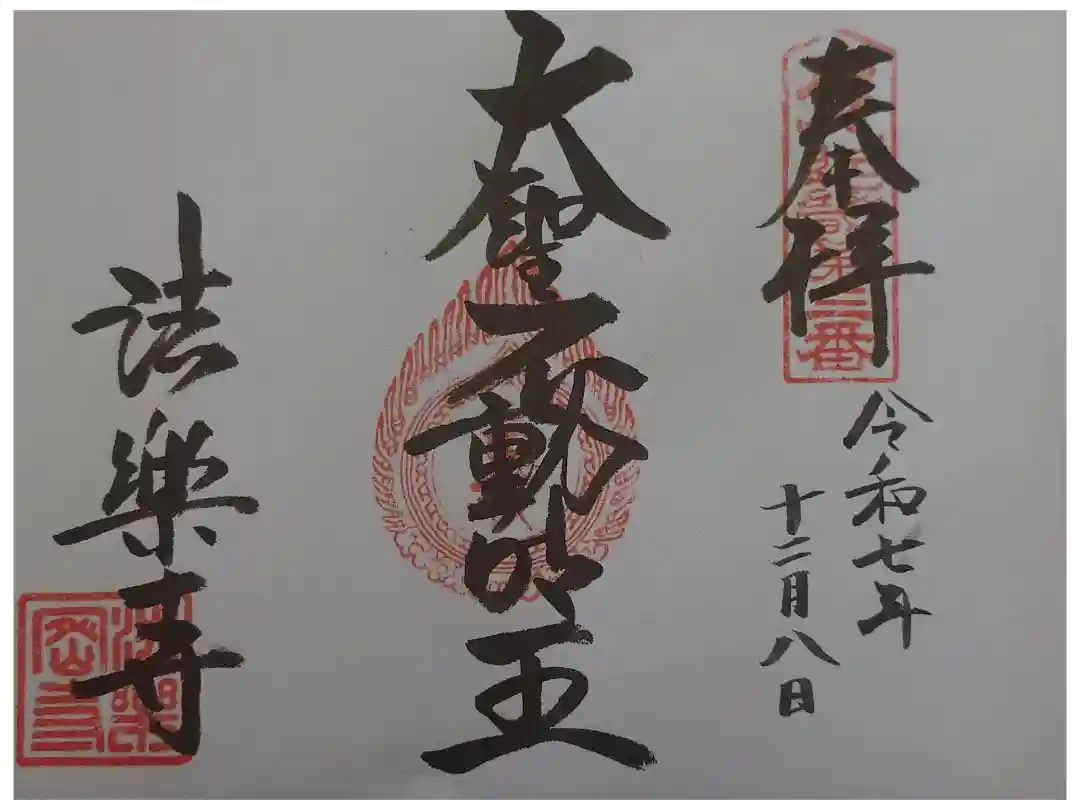 奉拝
第三番
令和七年
十二月八日
大聖不動明王
法樂寺